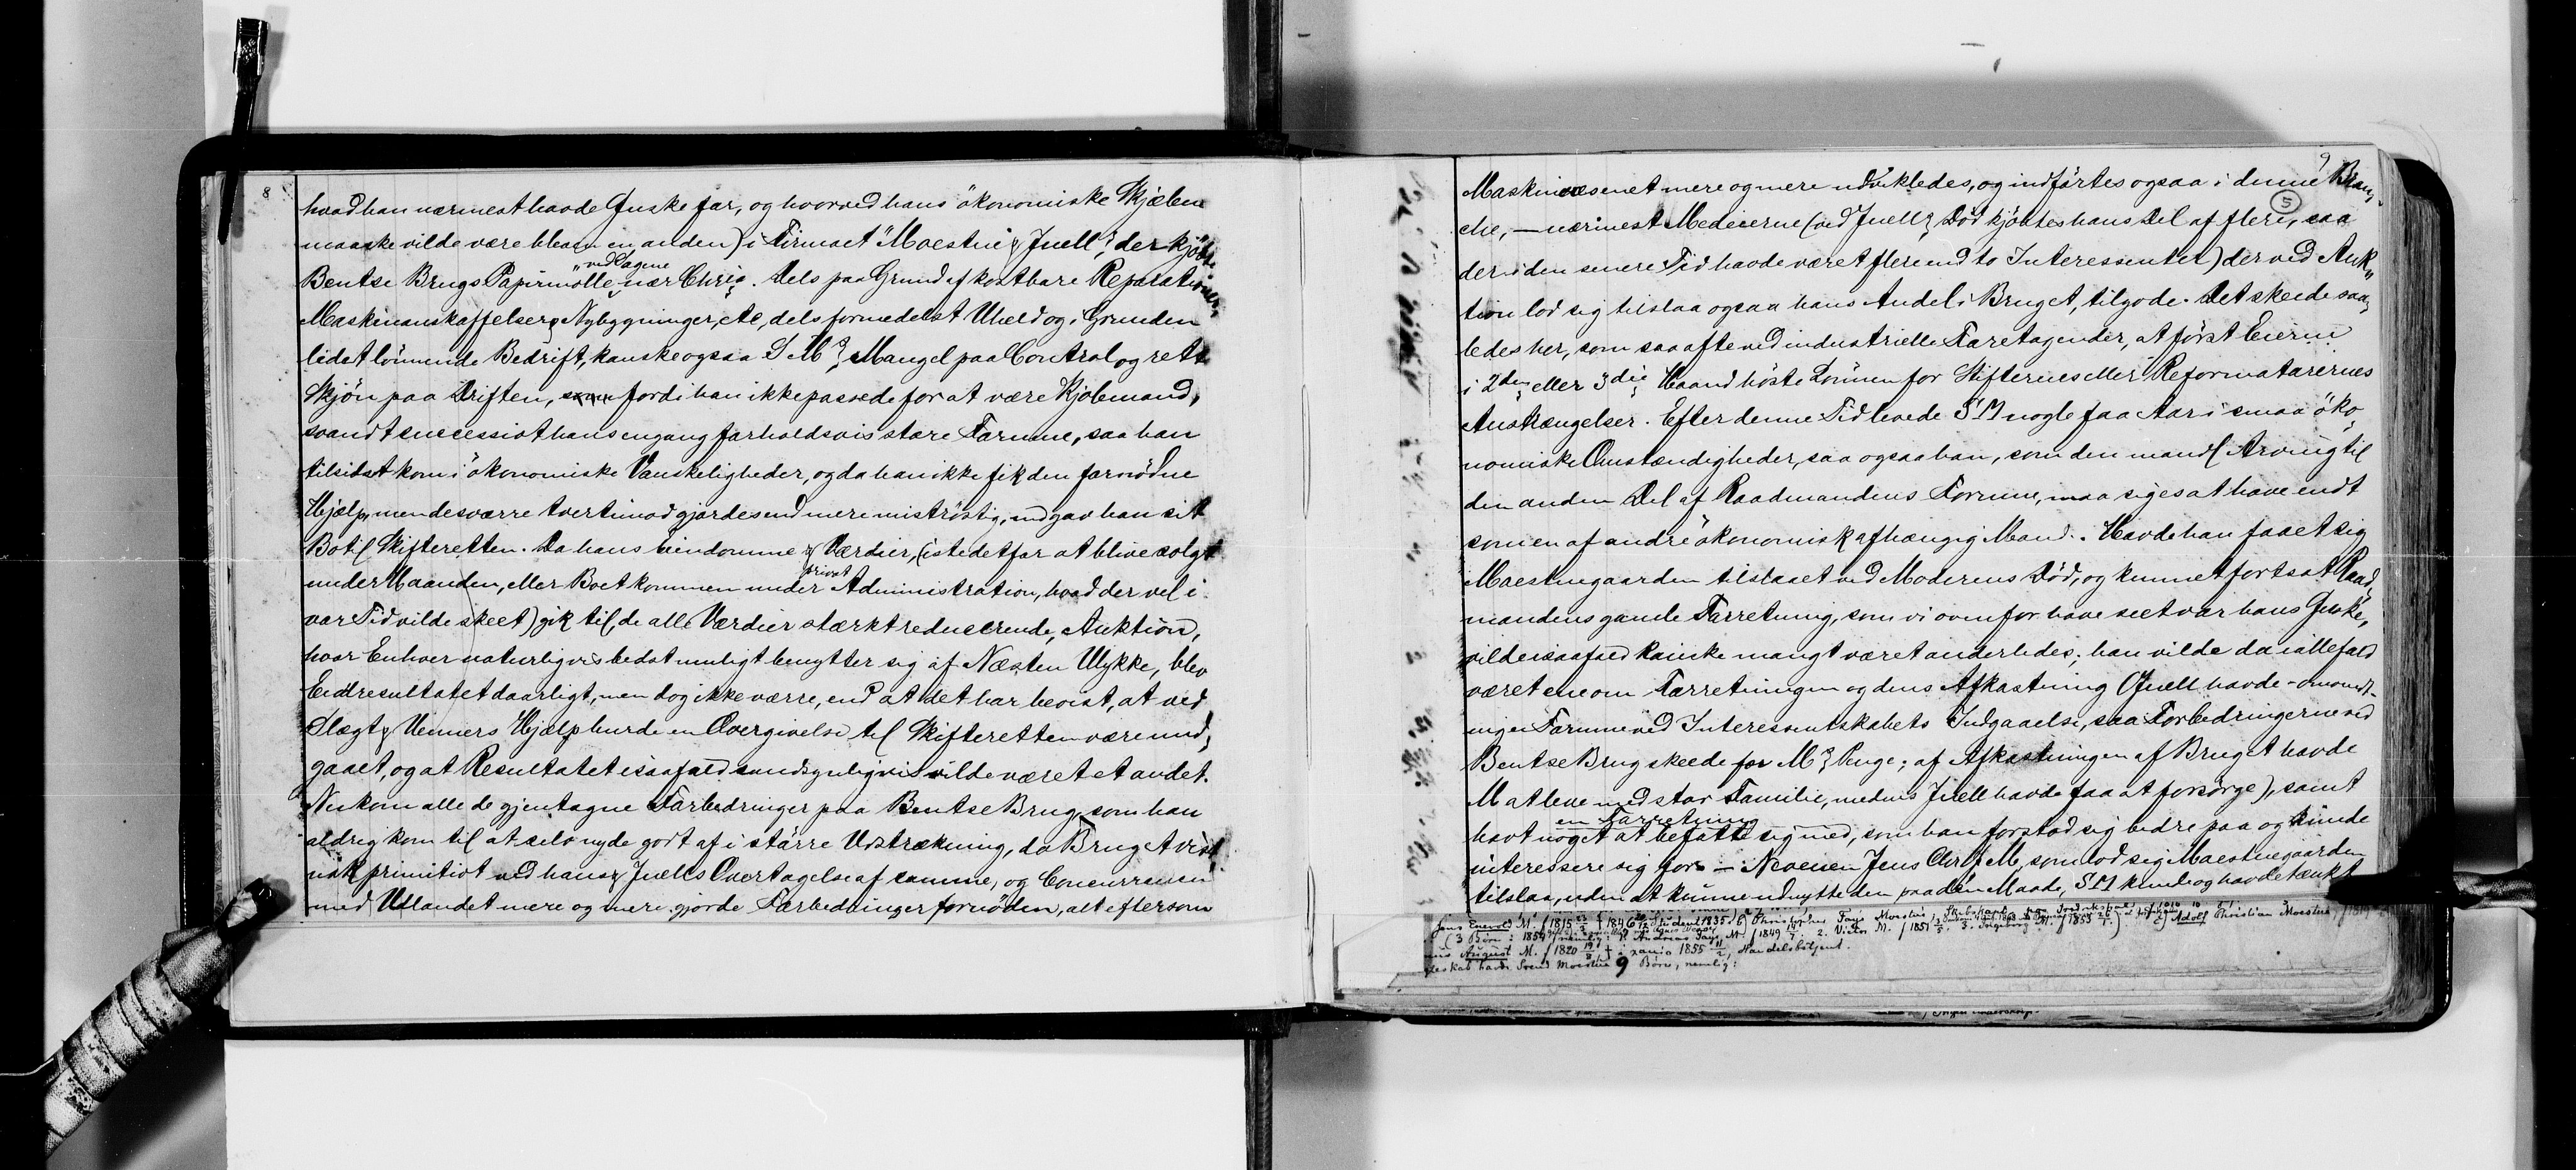 8
hvad han nærmest havde Ønske for, og hvorved hans økonomiske Skjæbne
maaske vilde være bleven en anden) i Firmaet "Maestue & Juell," der kjøbte
"ved Sagene
Bentse Brugs Papirmølle nær Chria. Dels paa Grund af kostbare Reparationer
Maskinanskaffelser & Nybygninger, etc, dels formedelst Uheld og i Grunden
lidet lönnende Bedrift, kanske ogsaa S M's Mangel paa Control og rett
Skjön paa Driften, fordi han ikke passede for at være Kjøbmand,
svandt successivt hans engang forholdsvis store Formue, saa han
tilsidst kom i økonomiske Vanskeligheder, og da han ikke fik den fornødne
Hjælp, men desværre tvertimod gjordes end mere mistrøstig, indgav han sit
Bo til Skifteretten. Da hans Eiendomme & Værdier, (istedetfor at blive solgt
privat
under Haanden, eller Boet kommen under Administration, hvad der vel i
vor Tid vilde skeet) gik til, de alle Værdier stærkt reducerende, Auktion,
hvor Enhver naturligvis bedst muligt benytter sig af Næsten Ulykke, blev
Endresultatet daarligt, men dog ikke værre, end at det har bevist, at ved
Slægt & Venners Hjælp burde en Overgivelse til Skifteretten være und,
gaaet, og at Resultatet isaafald sandsynligvis vilde været et andet.
Nu kom alle de gjentagne Forbedringer paa Bentse Brug, som han
aldrig kom til at selv nyde godt af i større Udstrækning, da Bruget vist
nok primitivt ved hans & Juells Overtagelse af samme, og Concurrencen
med Udlandet mere og mere gjorde Forbedringer fornöden, alt eftersom
9
5
Maskinvæsenet mere og mere udvikledes, og indførtes ogsaa i denne Bran,
che, — nærmest Medeierne (ved Juells Död kjöbtes hans Del af flere, saa
der i den senere Tid havde været flere end to Interessenter) der ved Auk,
tion lod sig tilslaa ogsaa hans Andel i Bruget, tilgode. Det skeede saa,
ledes her, som saa ofte ved industrielle Foretagender, at først Eieren
i 2den eller 3die Haand höste Lönnen for Stifternes eller Reformatorernes
Anstrængelser. Efter denne Tid levede S M nogle faa Aar i smaa øko,
nomiske Omstændigheder, saa ogsaa han, som den mandl Arving til
den anden Del af Raadmandens Formue, maa siges at have endt
som en af andre økonomisk afhængig Mand. Havde han faaet sig
Maestuegaarden tilslaaet ved Moderens Död, og kunnet fortsat Raad,
mandens gamle Forretning, som vi ovenfor have seet var hans Ønske,
vilde isaafald kanske mangt været anderledes; han vilde da iallefald
været ene om Forretningen og dens Afkastning (Juell havde
ingen Formue ved Interessentskabets Indgaaelse, saa Forbedringerne ved
Bentse Brug skeede for M's Penge; af Afkastningen af Bruget havde
M at leve med stor Familie, medens Juell havde faa at forsørge), samt
en Forretning
havt noget at befatte sig med, som han forstod sig bedre paa og kunde
interessere sig for — Nevøen Jens Chr f M, som lod sig Maestuegaarden
tilslaa, uden at kunne udnytte den paa den Maade, S M kunde og havde tænkt
Jens Enevold M. f 1815 † 1846 Student 1835) b) Christopher Fays Moestue, Skibskaptn. paa Fredrikshald c) Adolf Christian Moestue, f 1817
(3 Börn: 1854 nemlig: 1. Andreas Fays M. f 1849 2. Victor M. f 1851 3. Ingeborg M. f 1853
August M. f 1820 † i xania 1855, Handelsbetjent.
havde Svend Moestue 9 Børn, nemlig: